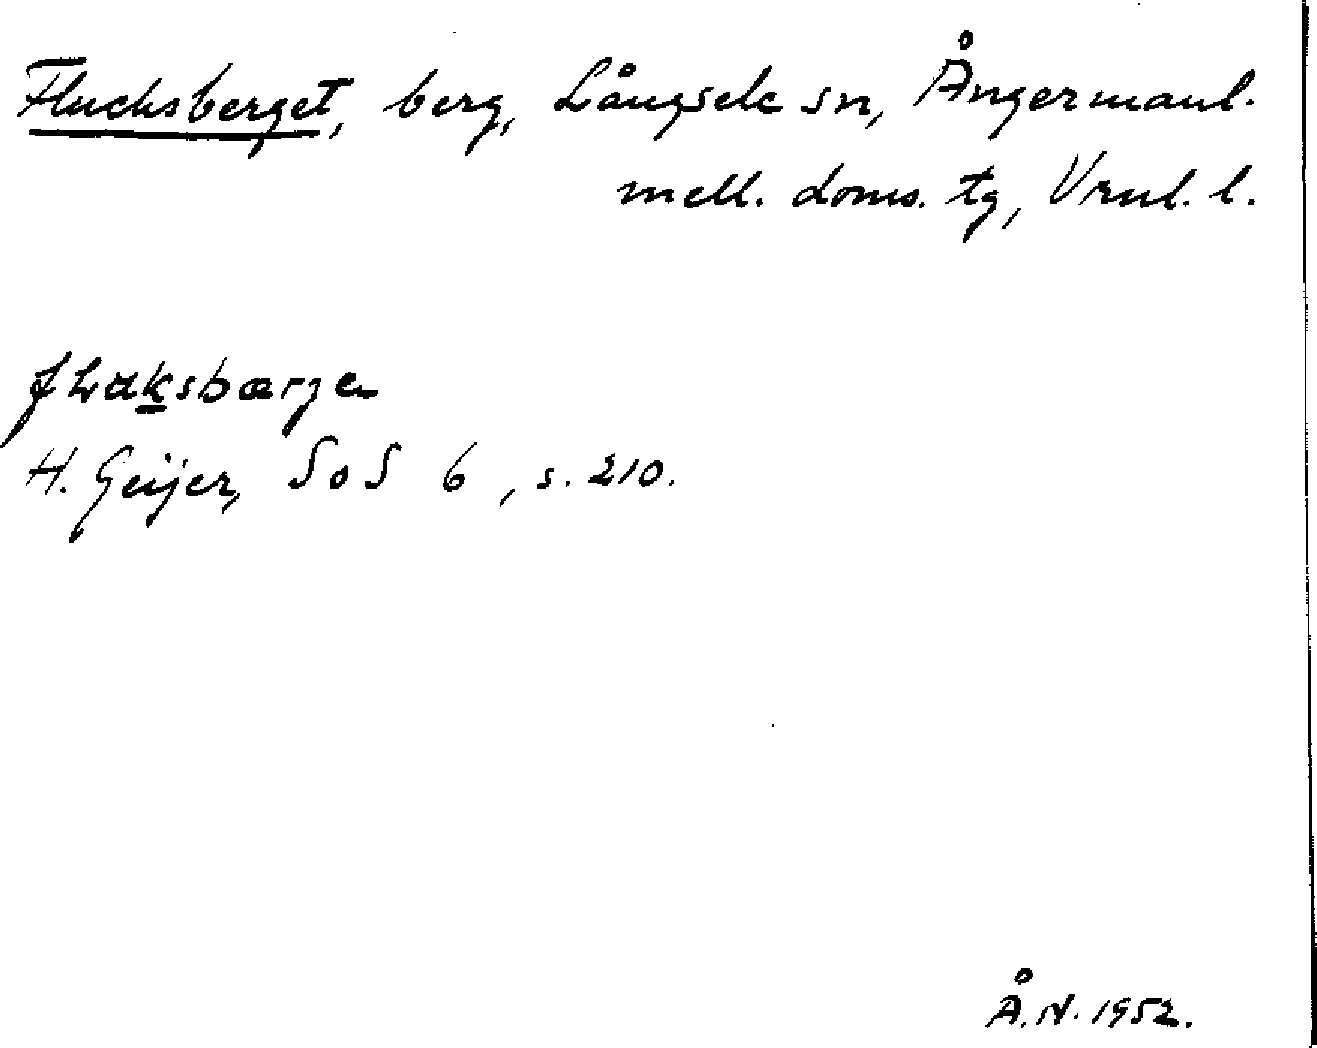 Flucksberget, berg, Långsele sn, Ångermanl.
mell. doms. tg, Vrnl. l.
H. Geijer, SoS 6, s. 210.
Å.N. 1952.